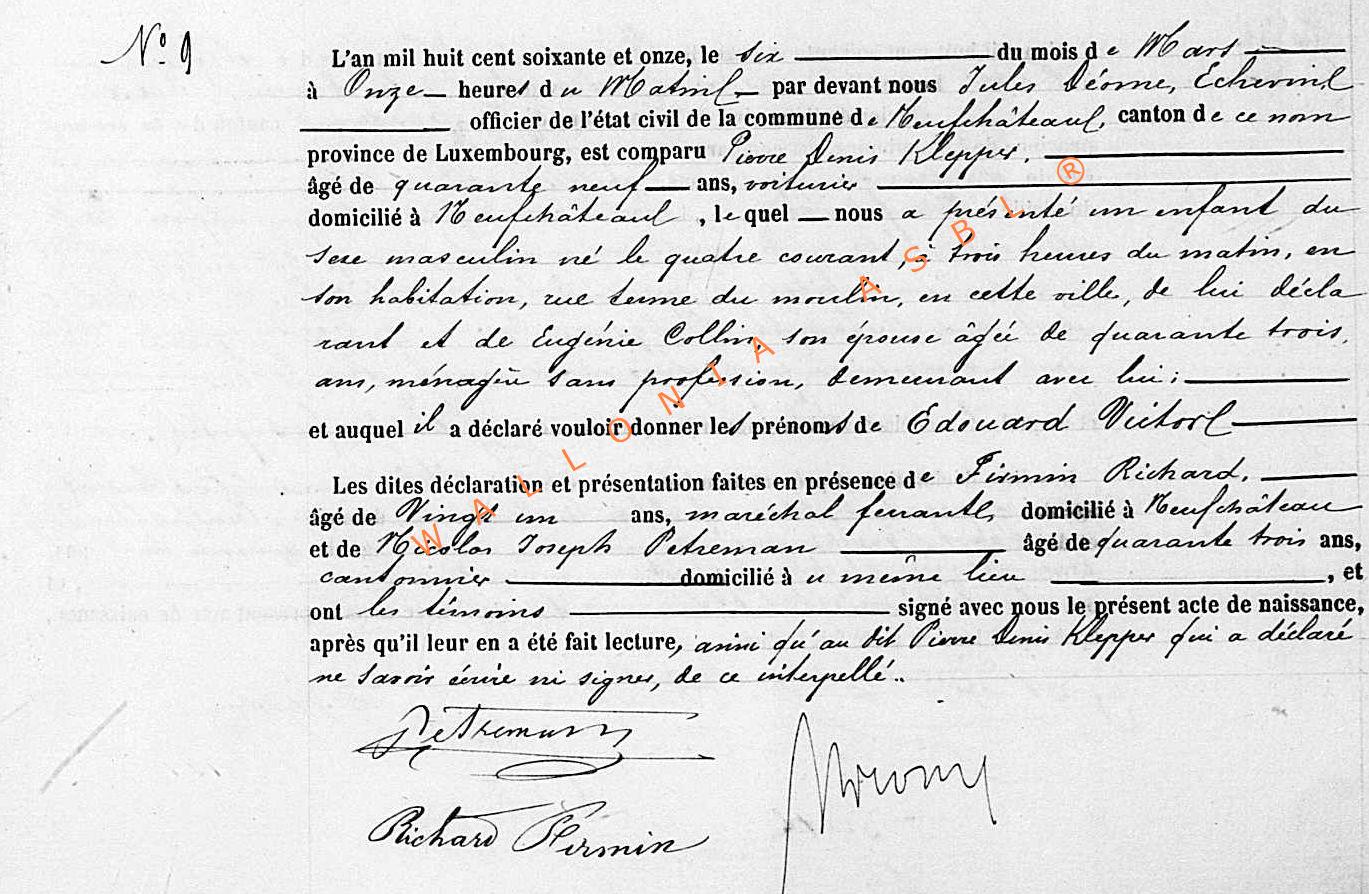 N° 9
L'an mil huit cent soixante et onze, le six du mois de Mars
à Onze heures du Matin par devant nous Jules Echevin
officier de l'état civil de la commune de Neufchâteau, canton de ce nom
province de Luxembourg, est comparu Pierre Denis Klepper.
âgé de quarante neuf ans, voiturier
domicilié à Neufchâteau, lequel nous a présenté un enfant du
sexe masculin né le quatre courant, à trois heures du matin, en
son habitation, rue terme du moulin, en cette ville, de lui décla
rant et de Eugénie Collin, son épouse âgée de quarante trois,
ans, ménagère sans profession, demeurant avec lui;
et auquel il a déclaré vouloir donner les prénoms de Edouard Victor
Les dites déclaration et présentation faites en présence de Firmin Richard,
âgé de Vingt un ans, maréchal ferrant, domicilié à Neufchâteau
et de Nicolas Joseph Petreman âgé de quarante trois ans,
cantonnier domicilié à u même lieu, et
ont les témoins signé avec nous le présent acte de naissance,
après qu'il leur en a été fait lecture, ainsi qu'au dit Pierre Denis Klepper qui a déclaré
ne savoir écrire ni signer, de ce interpellé..
Petreman
Richard Firmin
WALLONIA ASBL ®